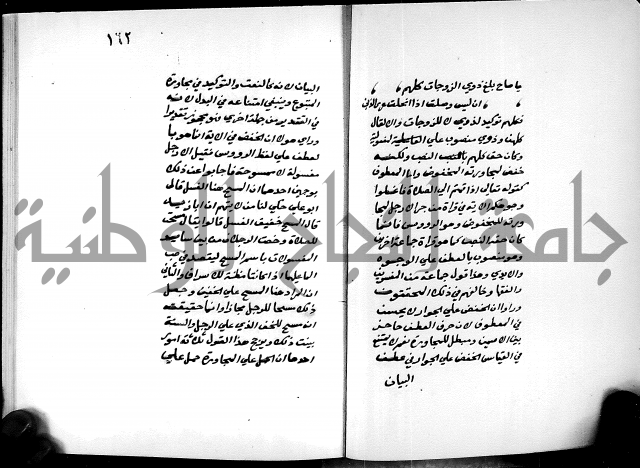 يا صاح بلغ ذوي الزوجات كلهم
ان ليس وصل اذا انحلت عرى الذنب
فكلهم توكيد لذوي لا للزوجات والا لقال
كلهن وذوي منصوب على المفعولية
وكان حق كلهم النصب ولكنه
خفض لمجاورته المخفوض واما المعطوف
كقوله تعالى اذا قمتم الى الصلاة فاغسلوا
وجوهكم الاية في قراءة من جر الارجل لمجا
ورته للمخفوض وهو الرووس وانما
كان حقه النصب كما هو قراءة جماعة اخرين
وهو منصوب بالعطف على الوجوه
والايدي وهذا قول جماعة من المفسرين
والفقها وخالفهم في ذلك المحققون
وراوا ان الخفض على الجوار لا يحسن
في المعطوف لان حرف العطف حاجز
بين الاسمين ومبطل للمجاورة نعم لا يمتنع
في القياس الخفض على الجوار في عطف
البيان
١٦٢
البيان لانه كالنعت والتوكيد في مجاورة
المتبوع وينبغي امتناعه في البدل لانه
في التقدير من جملة اخرى فهو محجوز تقديرا
وراى هولا ان الخفض في الاية انما هو با
لعطف على لفظ الرووس فقيل الارجل
مغسولة لا ممسوحة فاجابوا عن ذلك
بوجهين احدهما ان المسح هنا الغسل قال
ابو علي حكى لنا من لا يتهم ان ابا زيد
قال المسح خفيف الغسل يقال تمسحت
للصلاة وخصت الرجلان من بين سائر
المغسولات باسم المسح ليقتصد في صب
الماء عليهما اذ كانتا مظنة للاسراف والثاني
ان المراد هنا المسح على الخفين وجعل
ذلك مسحا للرجل مجازا وانما حقيقته
انه مسح للخف الذي على الرجل والسنة
بينت ذلك ويرجح هذا القول ثلاثة امور
احدها ان الحمل على المجاورة حمل على
جامعة النجاح الوطنية